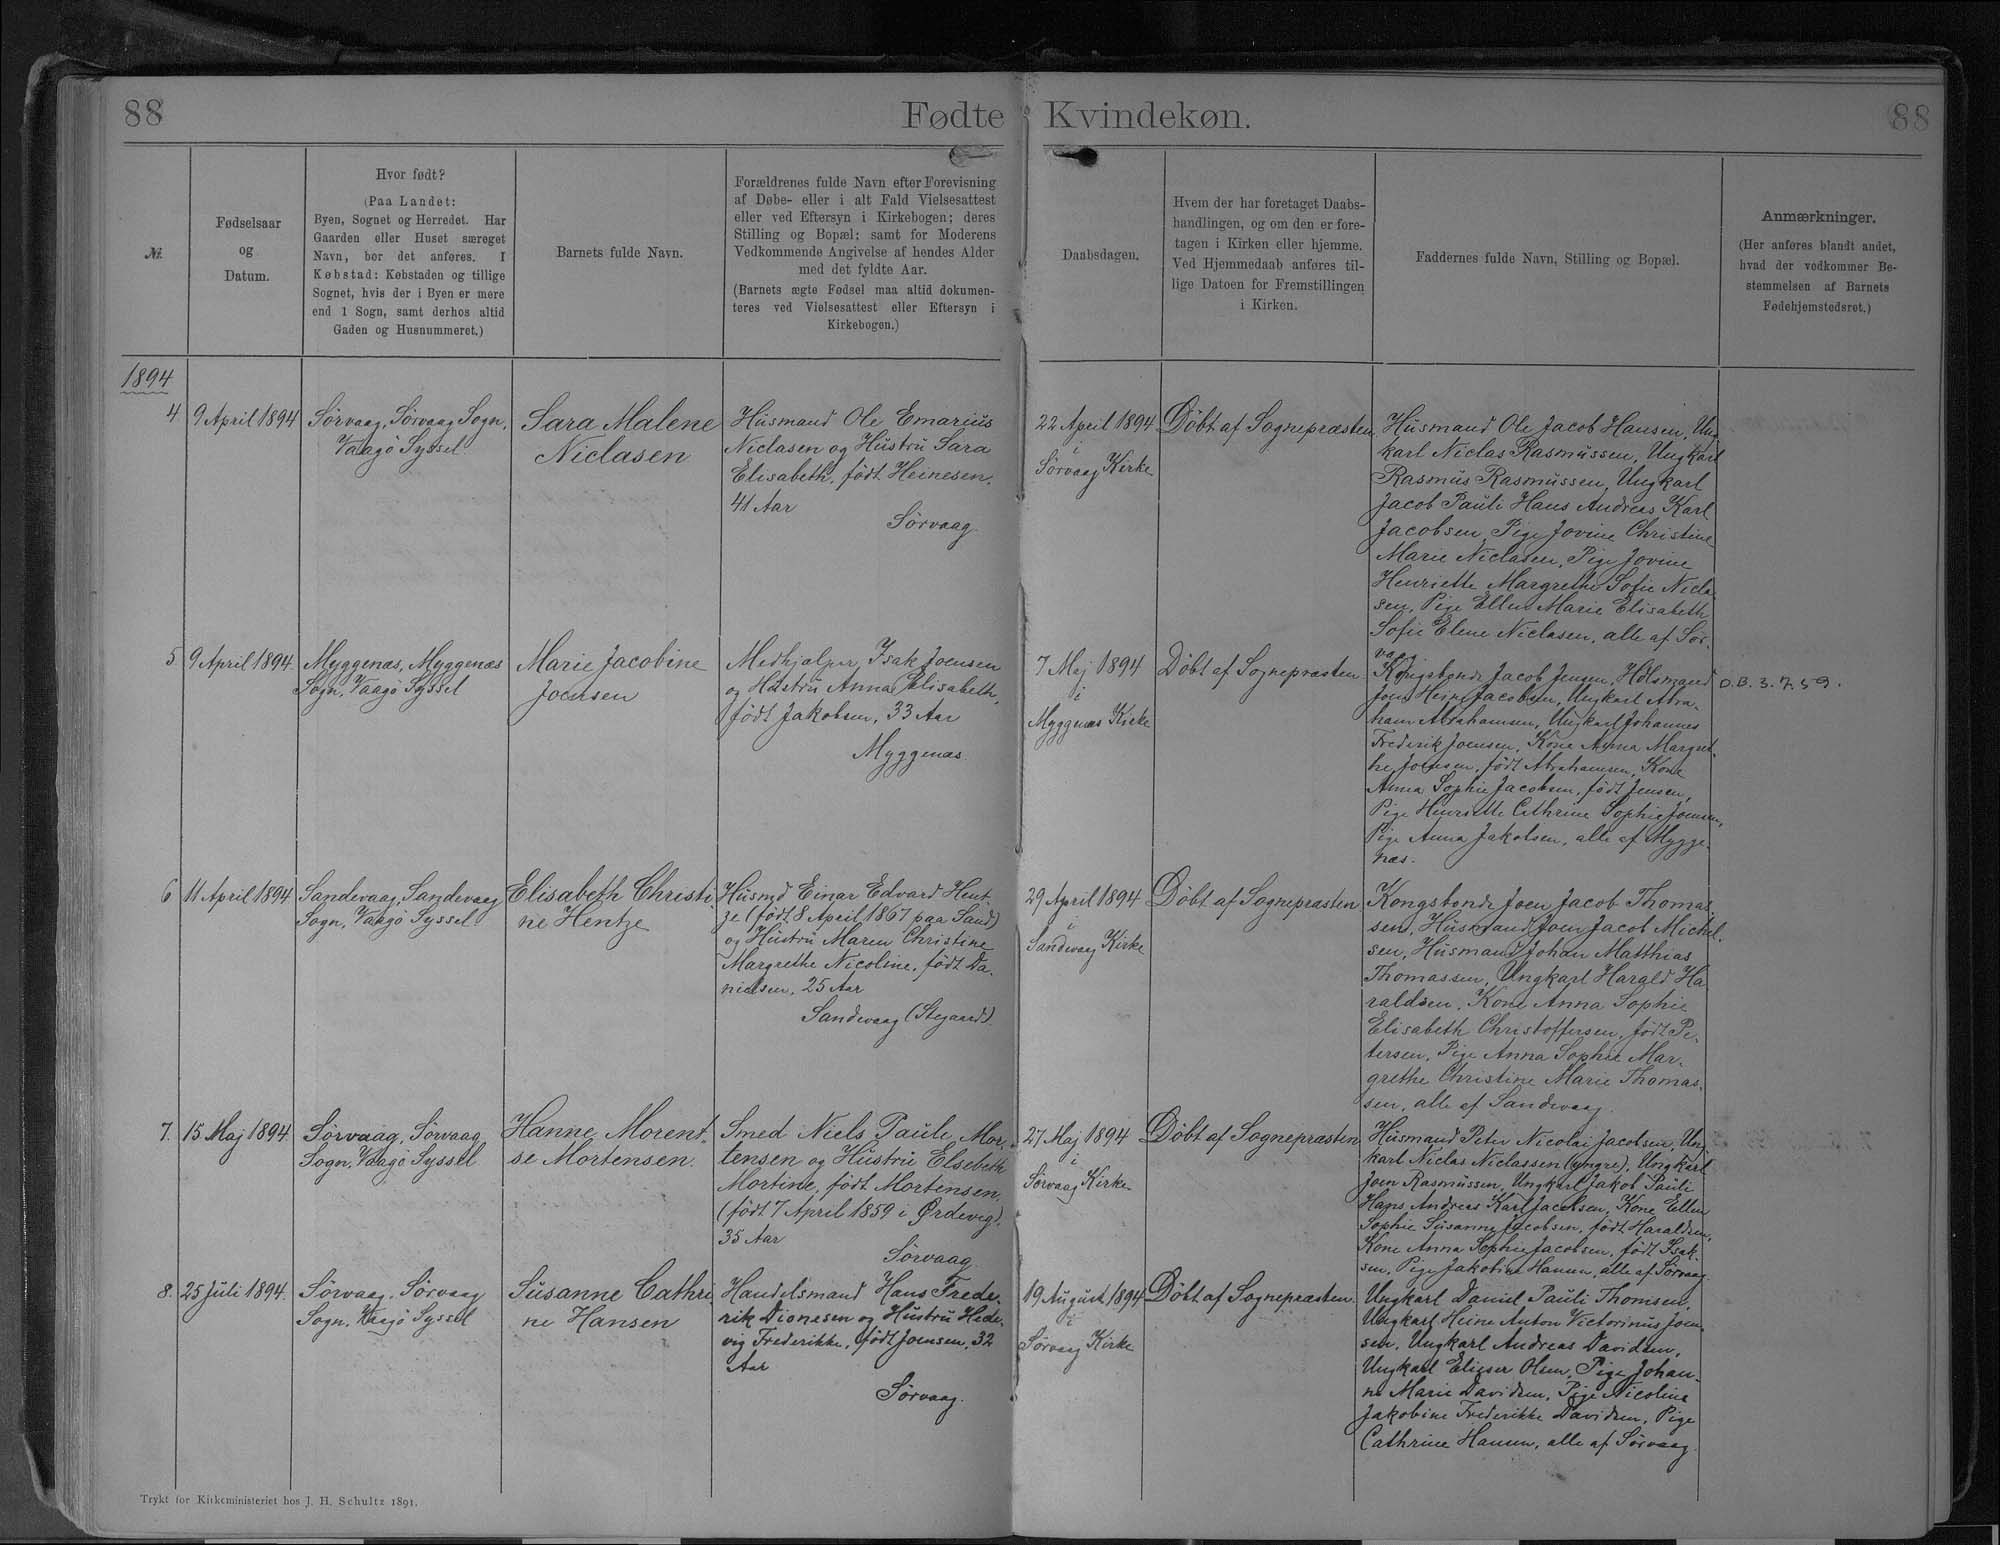 88
Fødte
Kvindekøn.
88
№.
Fødselsaar
og
Datum.
Hvor født?
(Paa Landet:
Byen, Sognet og Herredet. Har
Gaarden eller Huset særeget
Navn, bør det anføres. I
Købstad: Købstaden og tillige
Sognet, hvis der i Byen er mere
end 1 Sogn, samt derhos altid
Gaden og Husnummeret.)
Barnets fulde Navn.
Forældrenes fulde Navn efter Forevisning
af Døbe- eller i alt Fald Vielsesattest
eller ved Eftersyn i Kirkebogen; deres
Stilling og Bopæl; samt for Moderens
Vedkommende Angivelse af hendes Alder
med det fyldte Aar.
(Barnets ægte Fødsel maa altid dokumen-
teres ved Vielsesattest eller Eftersyn i
Kirkebogen.)
Daabsdagen.
Hvem der har foretaget Daabs-
handlingen, og om den er fore-
tagen i Kirken eller hjemme.
Ved Hjemmedaab anføres til-
lige Datoen for Fremstillingen
i Kirken.
Faddernes fulde Navn, Stilling og Bopæl.
Anmærkninger.
(Her anføres blandt andet,
hvad der vedkommer Be-
stemmelsen af Barnets
Fødehjemstedsret.)
1894
4
9 April 1894
Sørvaag, Sørvaag Sogn,
Vaagø Syssel
Sara Malene
Niclasen
Husmand Ole Emarius
Niclasen og Hustru Sara
Elisabeth, født Heinesen,
41 Aar
Sørvaag.
22 April 1894
i
Sørvaag Kirke
Døbt af Sognepræsten
Husmand Ole Jacob Hansen, Ung
karl Niclas Rasmussen, Ungkarl
Rasmus Rasmussen, Ungkarl
Jacob Pauli Hans Andreas Karl
Jacobsen, Pige Jovine Christine
Marie Niclasen, Pige Jovine
Henriette Margrethe Sofie Nicla-
sen, Pige Ellen Marie Elisabeth
Sofie Elene Niclasen, alle af Sør-
vaag
5
9 April 1894
Myggenæs, Myggenæs
Sogn, Vaagø Syssel
Marie Jacobine
Joensen
Medhjælper Isak Joensen
og Hustru Anna Elisabeth,
født Jakobsen, 33 Aar
Myggenæs
7 Maj 1894
i
Myggenæs Kirke
Døbt af Sognepræsten
Kongsbonde Jacob Jensen, Husmand
Joen Heine Jacobsen, Ungkarl Abra-
ham Abrahamsen, Ungkarl Johannes
Frederik Joensen, Kone Anna Margret-
he Joensen, født Abrahamsen, Kone
Anna Sophie Jacobsen, født Jensen,
Pige Henriette Cathrine Sophie Joensen,
Pige Anna Jakobsen, alle af Mygge-
næs.
D.B. 3.7.59.
6
11 April 1894
Sandevaag, Sandevaag
Sogn, Vaagø Syssel
Elisabeth Christi
ne Hentze
Husmd Einar Edvard Hent
ze (født 8 April 1867 paa Sand)
og Hustru Maren Christine
Margrethe Nicoline, født Da-
nielsen, 25 Aar
Sandevaag (Stegaard)
29 April 1894
i
Sandevaag Kirke
Døbt af Sognepræsten
Kongsbonde Joen Jacob Thomas
sen, Husmand Joen Jacob Michel-
sen, Husmand Johan Matthias
Thomassen, Ungkarl Harald Ha
raldsen, Kone Anna Sophie
Elisabeth Christoffersen, født Pe-
tersen, Pige Anna Sophie Mar-
grethe Christine Marie Thomas-
sen, alle af Sandevaag.
7.
15 Maj 1894
Sørvaag, Sørvaag
Sogn, Vaagø Syssel
Hanne Morent-
se Mortensen.
Smed Niels Pauli Mor-
tensen og Hustru Elsebeth
Mortine, født Mortensen,
(født 7 April 1859 i Ørdevig),
35 Aar
Sørvaag.
27 Maj 1894
i
Sørvaag Kirke
Døbt af Sognepræsten
Husmand Peter Nicolai Jacobsen, Ung
karl Niclas Niclassen (yngre), Ungkarl
Joen Rasmussen, Ungkarl Jakob Pauli
Hans Andreas Karl Jacobsen, Kone Ellen
Sophie Susanne Jacobsen, født Haraldsen,
Kone Anna Sophie Jacobsen, født Isak-
sen, Pige Jakobine Hansen, alle af Sørvaag
8.
25 Juli 1894.
Sørvaag, Sørvaag
Sogn, Vaagø Syssel
Susanne Cathri
ne Hansen
Handelsmand Hans Frede-
rik Dionesen og Hustru Hed-
vig Frederikke, født Joensen, 32
Aar
Sørvaag.
19 August 1894
i
Sørvaag Kirke
Døbt af Sognepræsten
Ungkarl Daniel Pauli Thomsen,
Ungkarl Heine Anton Victorinus Joen-
sen, Ungkarl Andreas Davidsen,
Ungkarl Elieser Olsen, Pige Johan-
ne Marie Davidsen, Pige Nicoline
Jakobine Frederikke Davidsen, Pige
Cathrine Hansen, alle af Sørvaag.
Trykt for Kirkeministeriet hos J. H. Schultz 1891.